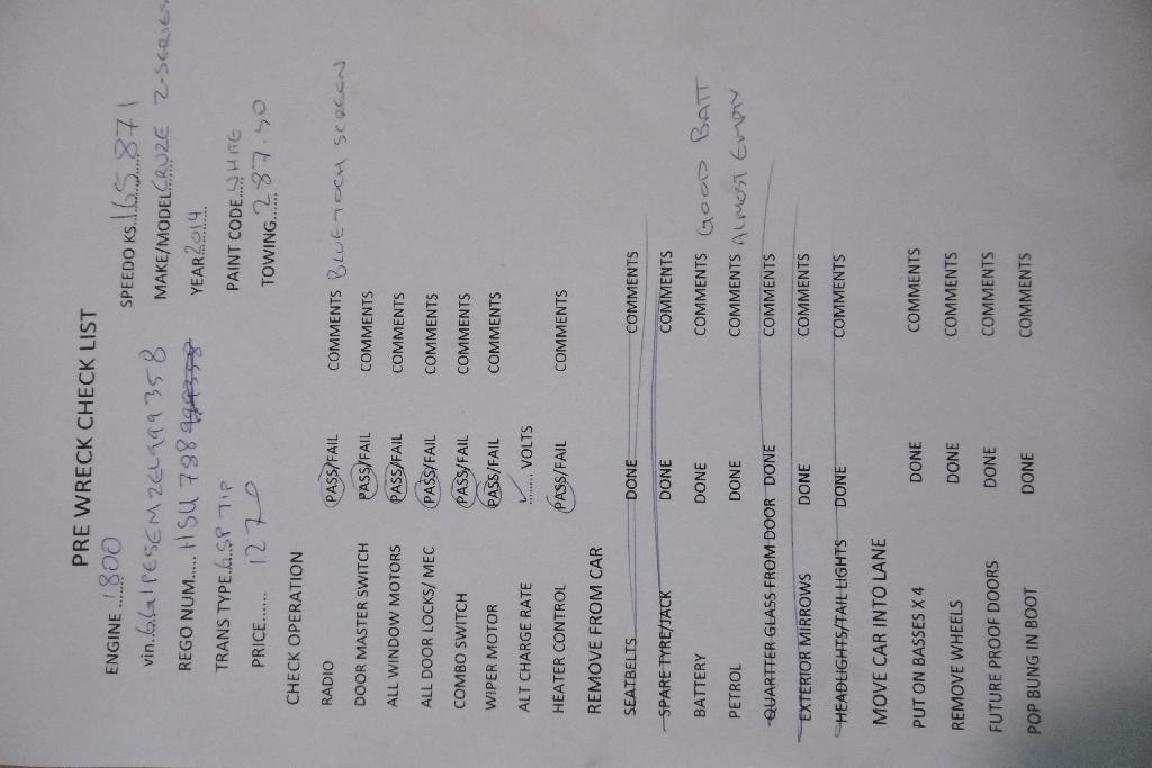 PRE WRECK CHECK LIST
ENGINE ......1800 SPEEDO KS......165871
vin. MAKE/MODEL.....CRUZE Z-SERIES
REGO NUM..... YEAR.......2014
TRANS TYPE.6SP TIP PAINT CODE.....WHITE
PRICE...... 1270 TOWING......287.50
CHECK OPERATION
RADIO PASS/FAIL COMMENTS BLUETOOTH SCREEN
DOOR MASTER SWITCH PASS/FAIL COMMENTS
ALL WINDOW MOTORS PASS/FAIL COMMENTS
ALL DOOR LOCKS/ MEC PASS/FAIL COMMENTS
COMBO SWITCH PASS/FAIL COMMENTS
WIPER MOTOR PASS/FAIL COMMENTS
ALT CHARGE RATE ........ VOLTS
HEATER CONTROL PASS/FAIL COMMENTS
REMOVE FROM CAR
SEATBELTS DONE COMMENTS
SPARE TYRE/JACK DONE COMMENTS
BATTERY DONE COMMENTS GOOD BATT
PETROL DONE COMMENTS ALMOST
QUARTTER GLASS FROM DOOR DONE COMMENTS
EXTERIOR MIRROWS DONE COMMENTS
HEADLIGHTS/TAIL LIGHTS DONE COMMENTS
MOVE CAR INTO LANE
PUT ON BASSES X 4 DONE COMMENTS
REMOVE WHEELS DONE COMMENTS
FUTURE PROOF DOORS DONE COMMENTS
POP BUNG IN BOOT DONE COMMENTS